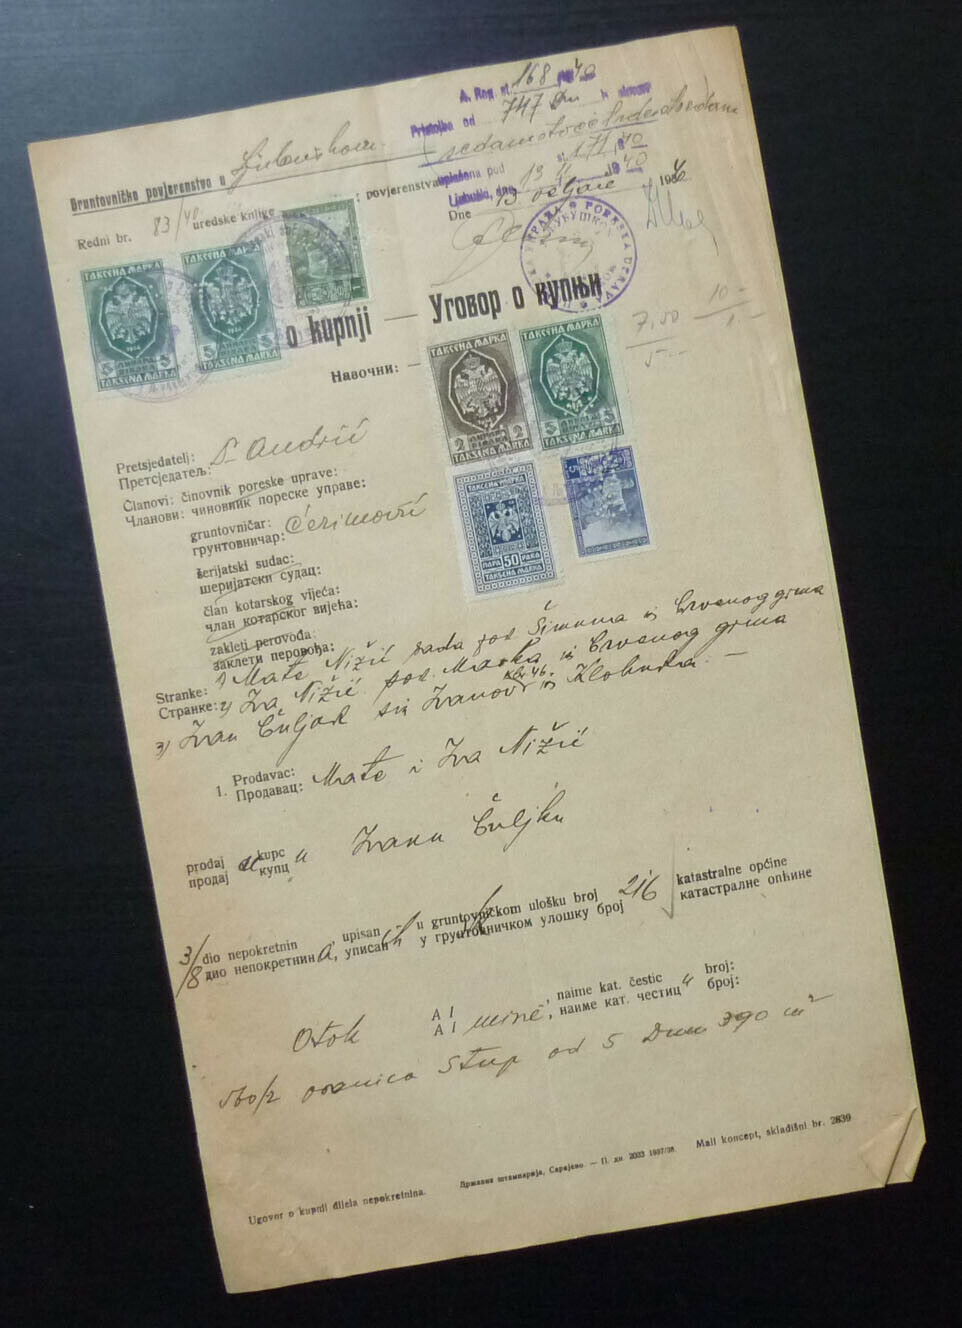 A. Reg. st. 168 40
Pristojba od 747 Din
sedamstoče
uplaćena pod st. 171/40
Ljubuški, dne 13 II 1940
Gruntovničko povjerenstvo u Ljubuškom
; povjerenstva
Redni br. 83/40 uredske knjige
Dne 13 veljače 1940
УПРАВА ПОРЕСКА UPRAVA
o kupnji — Уговор о купњи
7,50 10
5
Навочни: —
ТАКСЕНА МАРКА
5 5
TAKSENA MARKA
ТАКСЕНА МАРКА
5 5
TAKSENA MARKA
ТАКСЕНА МАРКА
2 ДИНАРА 2
TAKSENA MARKA
ТАКСЕНА МАРКА
5 5
TAKSENA MARKA
ТАКСЕНА МАРКА
ПАРА 50 PARA
TAKSENA MARKA
Pretsjedatelj: Andrić
Претсједатељ:
Članovi: činovnik poreske uprave:
Чланови: чиновник пореске управе:
gruntovničar: Ćerimović
грунтовничар:
šerijatski sudac:
шеријатски судац:
član kotarskog vijeća:
члан котарског вијећа:
zakleti perovođa:
заклети перовођа:
Stranke: 1) Mate Nižić sada pok Šimuna iz Crvenog grma
Странке: 2) Iva Nižić pok Marka iz Crvenog grma
kbr 46.
3) Ivan Čuljak sin Ivanov iz Klobuka. —
1. Prodavac: Mate i Iva Nižić
Продавац:
prodaju kupcu Ivanu Čuljku
продај купц
3/8 dio nepokretnina, upisanih u gruntovničkom ulošku broj 216 katastralne općine
дио непокретнина, уписан у грунтовничком улошку број катастралне општине
Otok A I mine, naime kat. čestic broj:
A I наиме кат. честиц број:
560/2 oranica Stup od 5 Dun 390 m²
Ugovor o kupnji dijela nepokretnina.
Државна штампарија, Сарајево. — П. хн. 2003 1937/38
Mali koncept, skladišni br. 2839